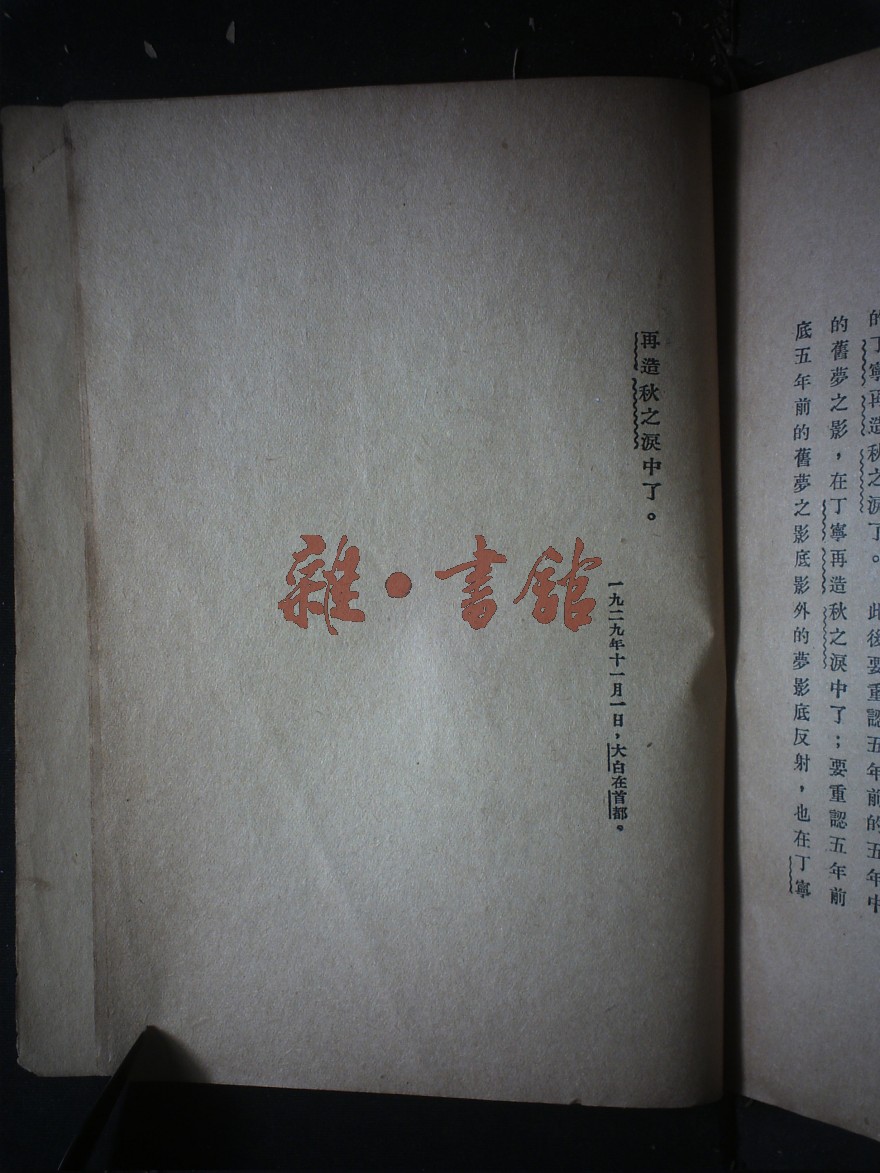 的丁寧再造秋之淚了。此後要重認五年前的五年中
的舊夢之影，在丁寧再造秋之淚中了；要重認五年前
底五年前的舊夢之影底影外的夢影底反射，也在丁寧
再造秋之淚中了。
一九二九年十一月一日，大白在首都。
雜·書館